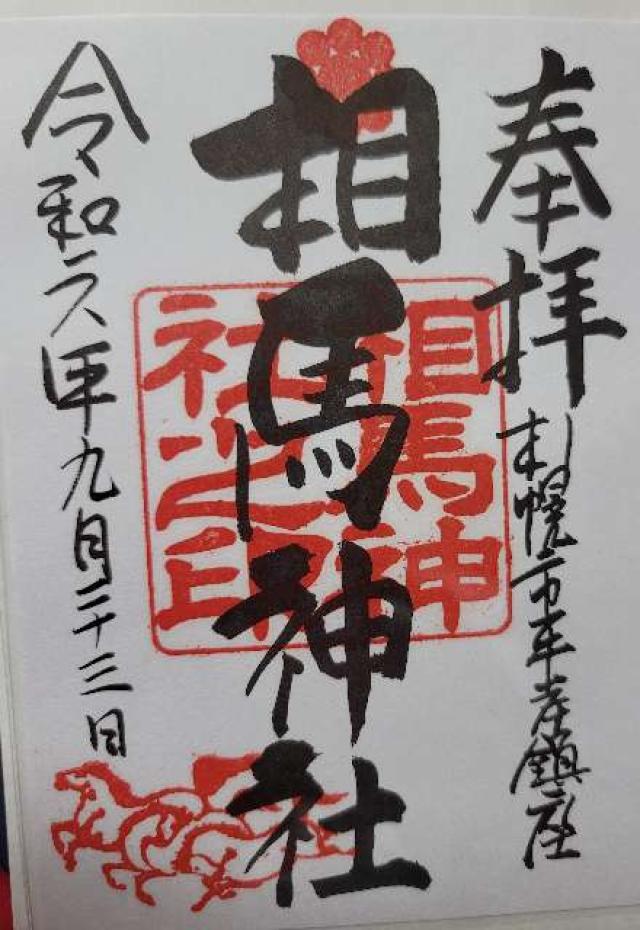 奉拝
札幌市平岸鎮座
相馬神社
相馬神社之印
令和六年九月二十三日